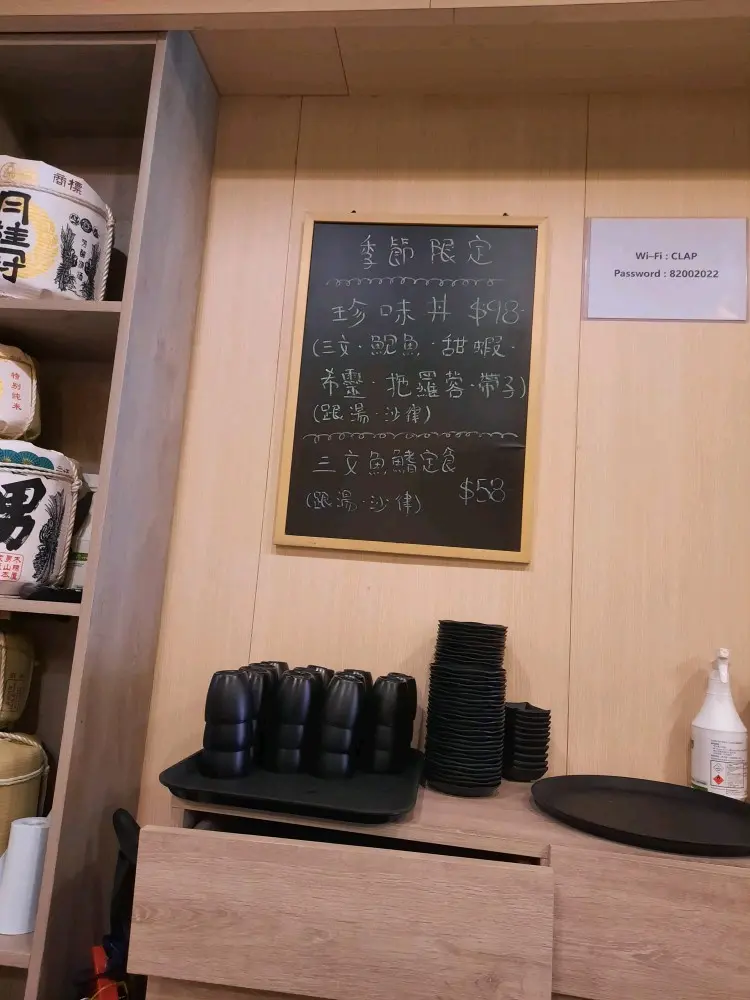 季節限定
珍味丼 $98
(三文·鯛魚·甜蝦·
希靈·拖羅蓉·帶子)
(跟湯·沙律)
三文魚鰭定食
(跟湯·沙律) $58
Wi-Fi : CLAP
Password : 82002022
商標
月桂冠
特別純米
男